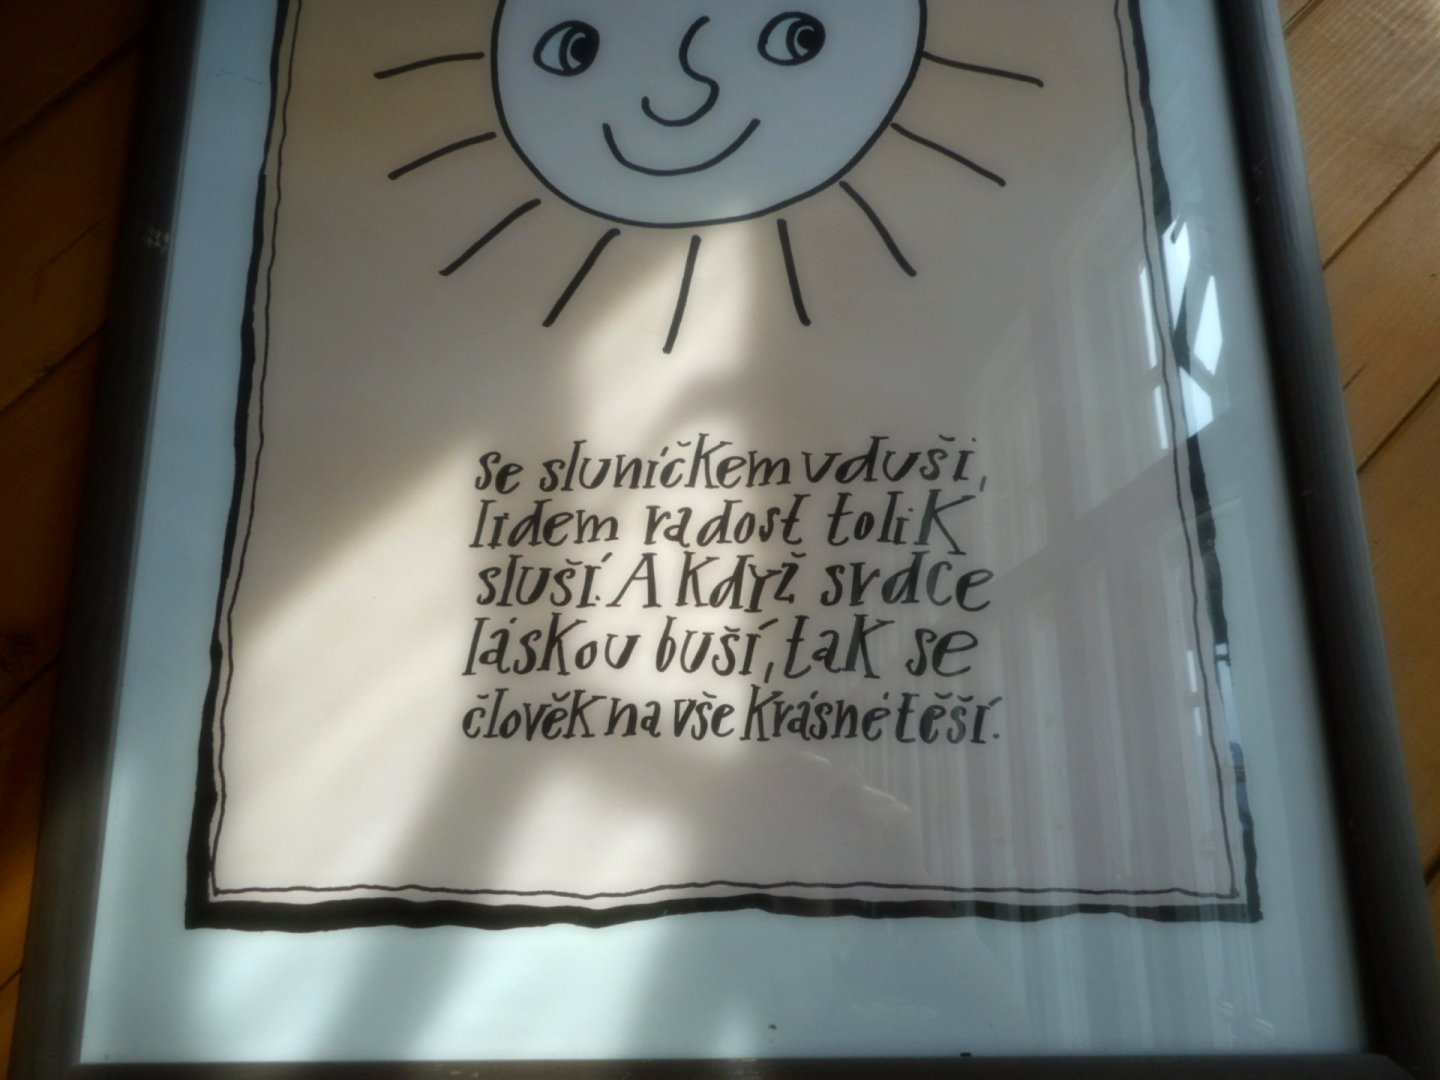 se sluníčkem v duši,
lidem radost tolik
sluší. A když srdce
láskou buší, tak se
člověk na vše krásné těší.